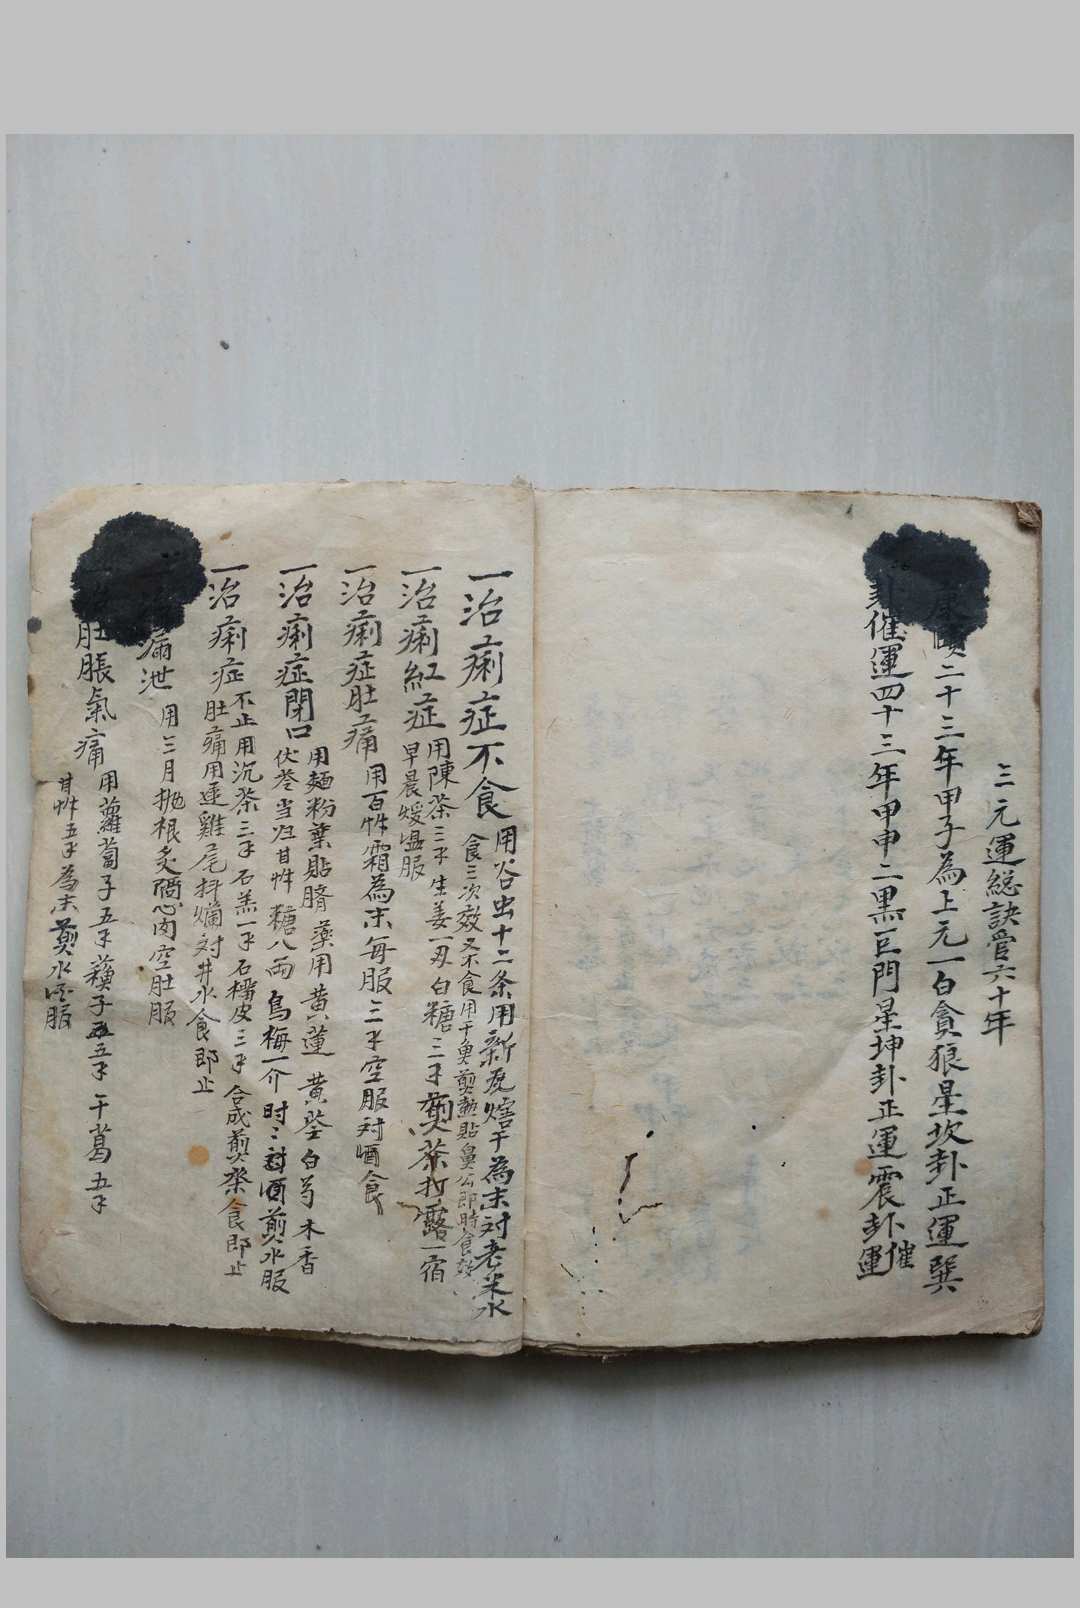 三元運総訣管六十年
二十三年甲子為上元一白貪狼星坎卦正運巽
卦催運四十三年甲申二黑巨門星坤卦正運震卦催運
一治痢症不食
用谷虫十二条用新瓦焙干為末対老米水
食三次效
一治痢紅症
用陳茶三子生姜一刄白糖三子煎茶打露一宿
早晨煖温服
一治痢症肚痛
用百艸霜為末每服三子空服対酒食
一治痢症閉口
用麵粉葉貼臍藥用黄連黄芩白芍木香
伏苓当归甘艸糖八两烏梅一介时〻対酒煎水服
一治痢症
不止用沉茶三子石羔一子石榴皮三子合成煎藥食即止
肚痛用連雞尾抖爛対井水食即止
漏泄
用三月抛根炙酒肉空肚服
肚脹氣痛
用蘿蔔子五子蘇子五子干葛五子
甘艸五子為末煎水服